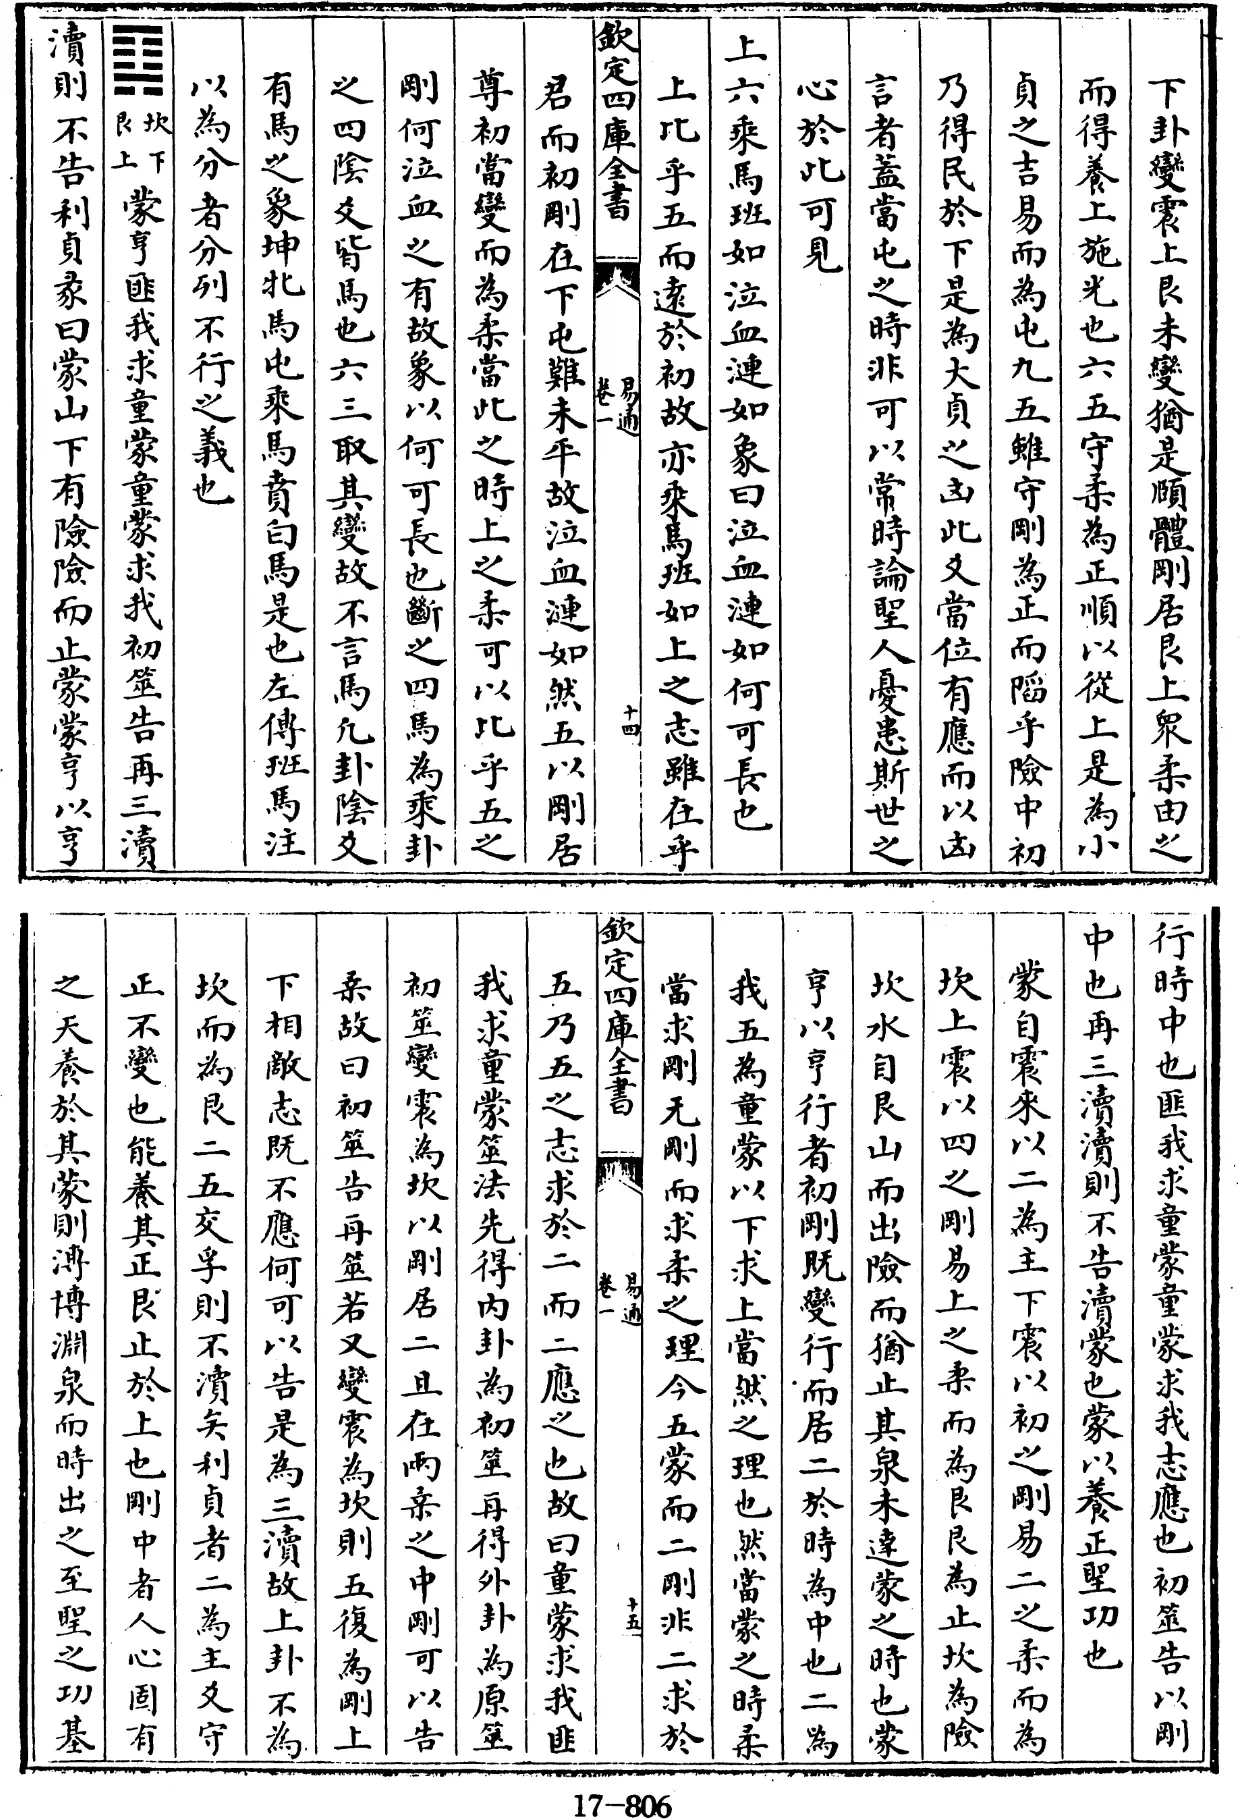 下卦變震上艮未變猶是頤體剛居艮上衆柔由之
而得養上施光也六五守柔為正順以從上是為小
貞之吉易而為屯九五雖守剛為正而陷乎險中初
乃得民於下是為大貞之凶此爻當位有應而以凶
言者蓋當屯之時非可以常時論聖人憂患斯世之
心於此可見
上六乘馬班如泣血漣如象曰泣血漣如何可長也
上比乎五而遠於初故亦乘馬班如上之志雖在乎
欽定四庫全書
易通
卷一
十四
君而初剛在下屯難未平故泣血漣如然五以剛居
尊初當變而為柔當此之時上之柔可以比乎五之
剛何泣血之有故象以何可長也斷之四馬為乘卦
之四陰爻皆馬也六三取其變故不言馬凡卦陰爻
有馬之象坤牝馬屯乘馬賁白馬是也左傳班馬注
以為分者分列不行之義也
䷃坎下艮上蒙亨匪我求童蒙童蒙求我初筮告再三瀆
瀆則不告利貞彖曰蒙山下有險險而止蒙蒙亨以亨
行時中也匪我求童蒙童蒙求我志應也初筮告以剛
中也再三瀆瀆則不告瀆蒙也蒙以養正聖功也
蒙自震來以二為主下震以初之剛易二之柔而為
坎上震以四之剛易上之柔而為艮艮為止坎為險
坎水自艮山而出險而猶止其泉未達蒙之時也蒙
亨以亨行者初剛既變行而居二於時為中也二為
我五為童蒙以下求上當然之理也然當蒙之時柔
當求剛无剛而求柔之理今五蒙而二剛非二求於
欽定四庫全書
易通
卷一
十五
五乃五之志求於二而二應之也故曰童蒙求我匪
我求童蒙筮法先得內卦為初筮再得外卦為原筮
初筮變震為坎以剛居二且在兩柔之中剛可以告
柔故曰初筮告再筮若又變震為坎則五復為剛上
下相敵志既不應何可以告是為三瀆故上卦不為
坎而為艮二五交孚則不瀆矣利貞者二為主爻守
正不變也能養其正艮止於上也剛中者人心固有
之天養於其蒙則溥博淵泉而時出之至聖之功基
17-806